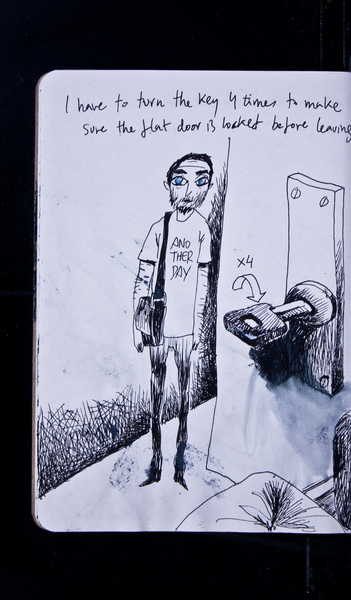 I have to turn the key 4 times to make
sure the flat door is locket before leaving
ANO
THER
DAY
x4